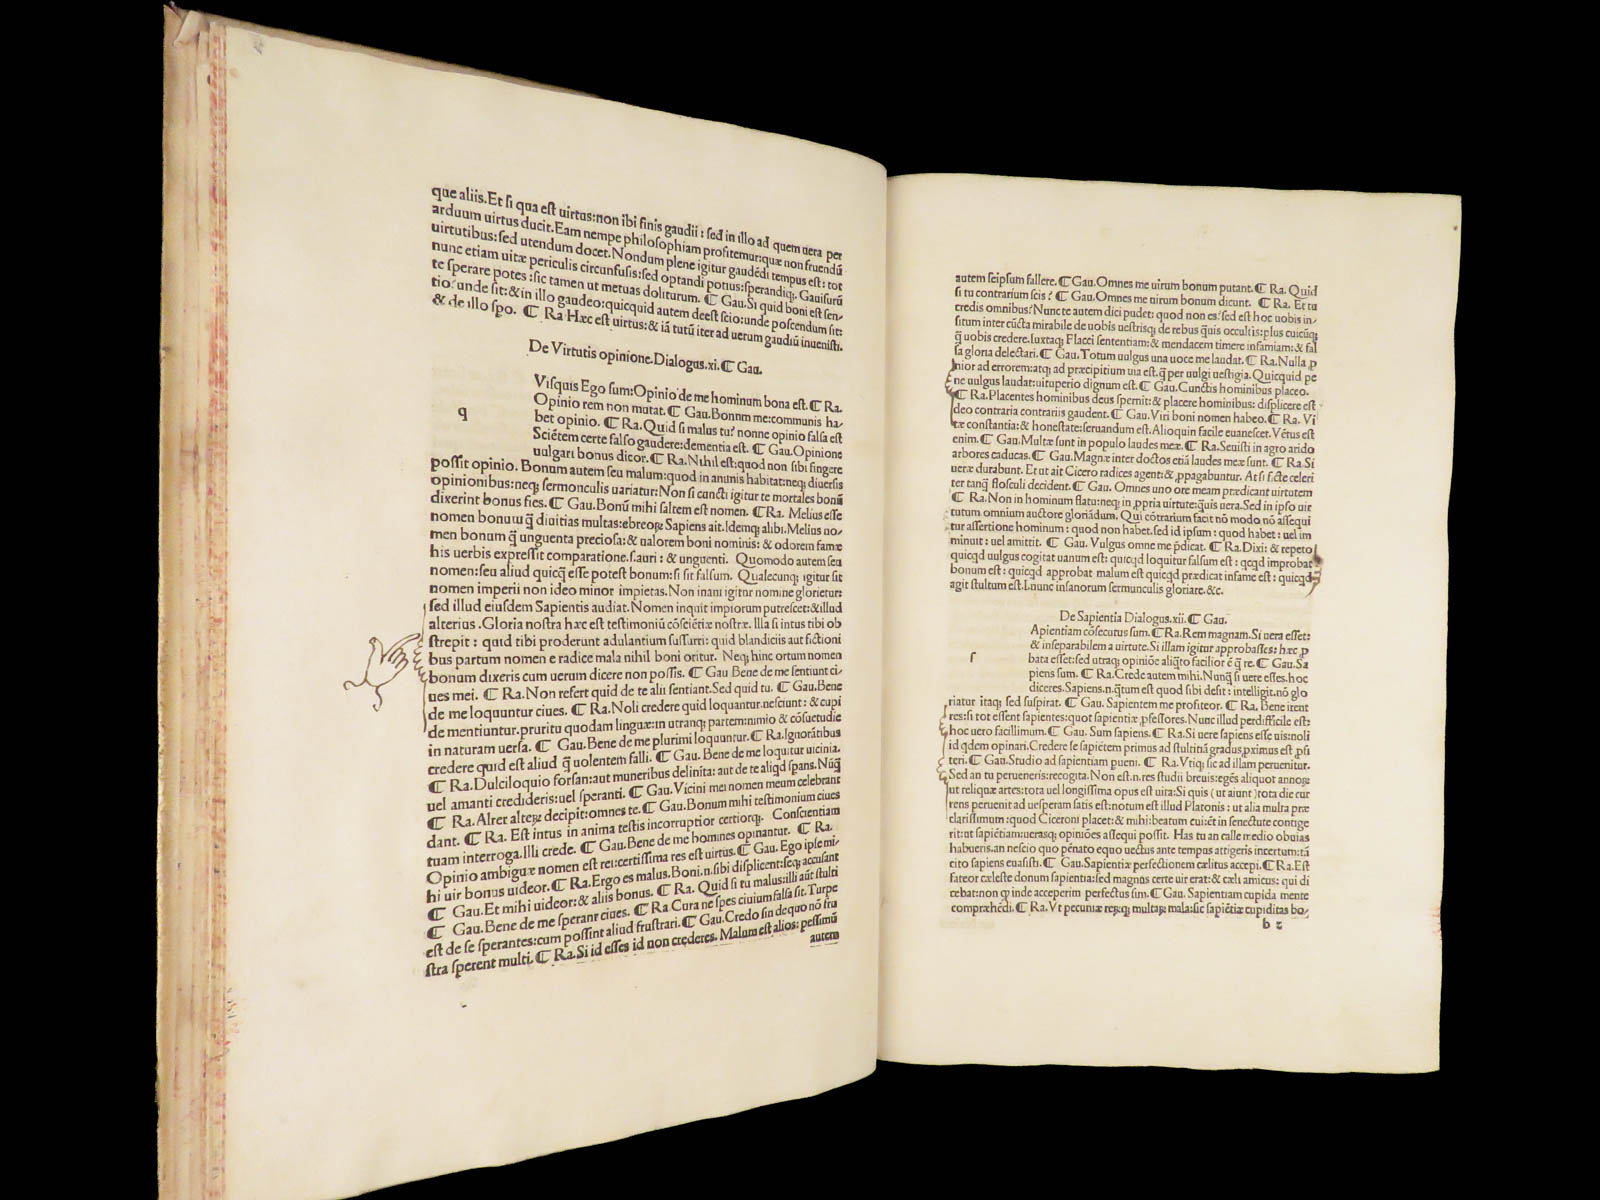 que aliis.Et si qua est uirtus:non ibi finis gaudii : sed in illo ad quem uera per
arduum uirtus ducit.Eam nempe philosophiam profitemur:quæ non fruendū
uirtutibus:sed utendum docet.Nondum plene igitur gaudēdi tempus est: tot
nunc etiam uitæ periculis circunfusis:sed optandi potius:sperandiq;. Gauisurū
te sperare potes :sic tamen ut metuas doliturum. ¶ Gau.Si quid boni est sen-
tio: unde sit:& in illo gaudeo:quicquid autem deest scio:unde poscendum sit:
& de illo spo. ¶ Ra Hæc est uirtus:& iā tutū iter ad uerum gaudiū inuenisti.
De Virtutis opinione.Dialogus.xi.¶ Gau.
q
Visquis Ego sum:Opinio de me hominum bona est.¶ Ra.
Opinio rem non mutat.¶ Gau.Bonnm me:communis ha-
bet opinio. ¶ Ra.Quid si malus tu? nonne opinio falsa est
Sciētem certe falso gaudere:dementia est. ¶ Gau.Opinione
uulgari bonus dicor.¶ Ra.Nihil est:quod non sibi fingere
possit opinio. Bonum autem seu malum:quod in animis habitat:neq; diuersis
opinionibus:neq; sermonculis uariatur:Non si cuncti igitur te mortales bonū
dixerint bonus fies. ¶ Gau.Bonū mihi saltem est nomen. ¶Ra. Melius esse
nomen bonum q̄ diuitias multas:ebreoꝝ Sapiens ait.Idemq; alibi.Melius no-
men bonum q̄ unguenta preciosa:& ualorem boni nominis: & odorem famæ
his uerbis expressit comparatione.s.auri : & unguenti. Quomodo autem seu
nomen:seu aliud quicq̄ esse potest bonum:si sit falsum. Qualecunq; igitur sit
nomen imperii non ideo minor impietas. Non inani igitur nomine glorietur:
sed illud eiusdem Sapientis audiat.Nomen inquit impiorum putrescet:&illud
alterius .Gloria nostra hæc est testimoniū cōsciētiæ nostræ. Illa si intus tibi ob
strepit : quid tibi proderunt adulantium susurri: quid blandiciis aut fictioni
bus partum nomen e radice mala nihil boni oritur. Neq; hinc ortum nomen
bonum dixeris cum uerum dicere non possis. ¶ Gau Bene de me sentiunt ci-
ues mei. ¶ Ra.Non refert quid de te alii sentiant.Sed quid tu. ¶ Gau.Bene
de me loquuntur ciues. ¶ Ra.Noli credere quid loquantur.nesciunt: & cupi
de mentiuntur.pruritu quodam linguæ:in utranq; partem:nimio & cōsuetudie
in naturam uersa. ¶ Gau.Bene de me plurimi loquuntur.¶ Ra.Ignorātibus
credere quid est aliud q̄ uolentem falli. ¶ Gau. Bene de me loquitur uicinia.
¶ Ra.Dulciloquio forsan:aut muneribus delinita: aut de te aliqd spans. Nūq̄
uel amanti credideris:uel speranti. ¶ Gau.Vicini mei nomen meum celebrant
¶ Ra. Alter alteꝝ decipit:omnes te.¶ Gau.Bonum mihi testimonium ciues
dant. ¶ Ra. Est intus in anima testis incorruptior certiorq;. Conscientiam
tuam interroga.Illi crede. ¶ Gau.Bene de me homines opinantur. ¶ Ra.
Opinio ambiguæ nomen est rei:certissima res est uirtus.¶ Gau. Ego ipse mi-
hi uir bonus uideor.¶ Ra.Ergo es malus.Boni.n.sibi displicent:seq; accusant
¶ Gau.Et mihi uideor:& aliis bonus. ¶ Ra. Quid si tu malus:illi aūt stulti
¶ Gau.Bene de me sperant ciues. ¶ Ra Cura ne spes ciuium falsa sit.Turpe
est de se sperantes:cum possint aliud frustrari.¶ Gau.Credo sin de quo nō fru
stra sperent multi.¶ Ra.Si id esses id non crederes. Malum est alios: pessimū
autem
autem seipsum fallere. ¶ Gau.Omnes me uirum bonum putant.¶ Ra. Quid
si tu contrarium scis? ¶ Gau.Omnes me uirum bonum dicunt. ¶ Ra. Et tu
credis omnibus? Nunc te autem dici pudet: quod non es? sed est hoc uobis in-
situm inter cūcta mirabile de uobis uestrisq; de rebus q̄uis occultis:plus cuicūq;
q̄ uobis credere.Iuxtaq; Flacci sententiam:& mendacem timere infamiam:& fal
sa gloria delectari.¶ Gau.Totum uulgus una uoce me laudat.¶ Ra.Nulla ꝓ
nior ad errorem:atq; ad præcipitium uia est.q̄ per uulgi uestigia.Quicquid pe
ne uulgus laudat:uituperio dignum est.¶ Gau.Cunctis hominibus placeo.
¶ Ra.Placentes hominibus deus spernit:& placere hominibus: displicere est
deo contraria contrariis gaudent.¶ Gau. Viri boni nomen habeo.¶ Ra. Vi
tæ constantia:& honestate:seruandum est.Alioquin facile euanescet.Vētus est
enim.¶ Gau.Multæ sunt in populo laudes meæ.¶ Ra.Seuisti in agro arido
arbores caducas.¶ Gau.Magnæ inter doctos etiā laudes meæ sunt. ¶ Ra.Si
ueræ durabunt. Et ut ait Cicero radices agent:& ꝓpagabuntur. At si ficte celeri
ter tanq̄ flosculi decident.¶ Gau. Omnes uno ore meam prædicant uirtutem
¶ Ra.Non in hominum flatu:neq; in ꝓpria uirtute:quis uera.Sed in ipso uir
tutum omnium auctore gloriādum. Qui cōtrarium facit nō modo nō assequi
tur assertione hominum : quod non habet.sed id ipsum: quod habet: uel im
minuit : uel amittit. ¶ Gau. Vulgus omne me p̄dicat. ¶ Ra.Dixi: & repeto
quicqd uulgus cogitat uanum est: quicqd loquitur falsum est : qcqd improbat
bonum est : quicqd approbat malum est quicqd prædicat infame est : quicqd
agit stultum est.I.nunc insanorum sermunculis gloriare.&c.
De Sapientia Dialogus.xii.¶ Gau.
s
Apientiam cōsecutus sum.¶ Ra.Rem magnam.Si uera esset:
& inseparabilem a uirtute.Si illam igitur approbasses: hæc ꝓ
bata esset:sed utraq; opiniōe aliq̄to facilior ē q̄ re.¶ Gau.Sa
piens sum. ¶ Ra.Crede autem mihi.Nunq̄ si uere esses.hoc
diceres.Sapiens.n.q̄tum est quod sibi desit : intelligit.nō glo
riatur itaq; sed suspirat. ¶ Gau. Sapientem me profiteor. ¶ Ra. Bene irent
res:si tot essent sapientes:quot sapientiæ ꝓfessores.Nunc illud perdifficile est:
hoc uero facillimum.¶ Gau. Sum sapiens. ¶ Ra.Si uere sapiens esse uis:noli
id q̄dem opinari.Credere se sapiētem primus ad stultitiā gradus.ꝓximus est ꝓfi
teri.¶ Gau.Studio ad sapientiam pueni. ¶ Ra.Vtiq; sic ad illam peruenitur.
Sed an tu perueneris:recogita. Non est.n.res studii breuis:egēs aliquot annoꝝ
ut reliquæ artes:tota uel longissima opus est uita:Si quis ( ut aiunt )tota die cur
rens peruenit ad uesperam satis est:notum est illud Platonis : ut alia multa præ
clarissimum :quod Ciceroni placet:& mihi:beatum cui:ēt in senectute contige
rit:ut sapiētiam:uerasq; opiniōes assequi possit. Has tu an calle medio obuias
habueris.an nescio quo pēnato equo uectus ante tempus attigeris incertum:tā
cito sapiens euasisti.¶ Gau.Sapientiæ perfectionem cælitus accepi.¶ Ra.Est
fateor cæleste donum sapientia:sed magnus certe uir erat:& cæli amicus: qui di
cebat:non q̄ inde acceperim perfectus sim.¶ Gau.Sapientiam cupida mente
compræhēdi.¶ Ra.Vt pecuniæ reꝝq; multaꝝ mala:sic sapiētiæ cupiditas bo-
b 2